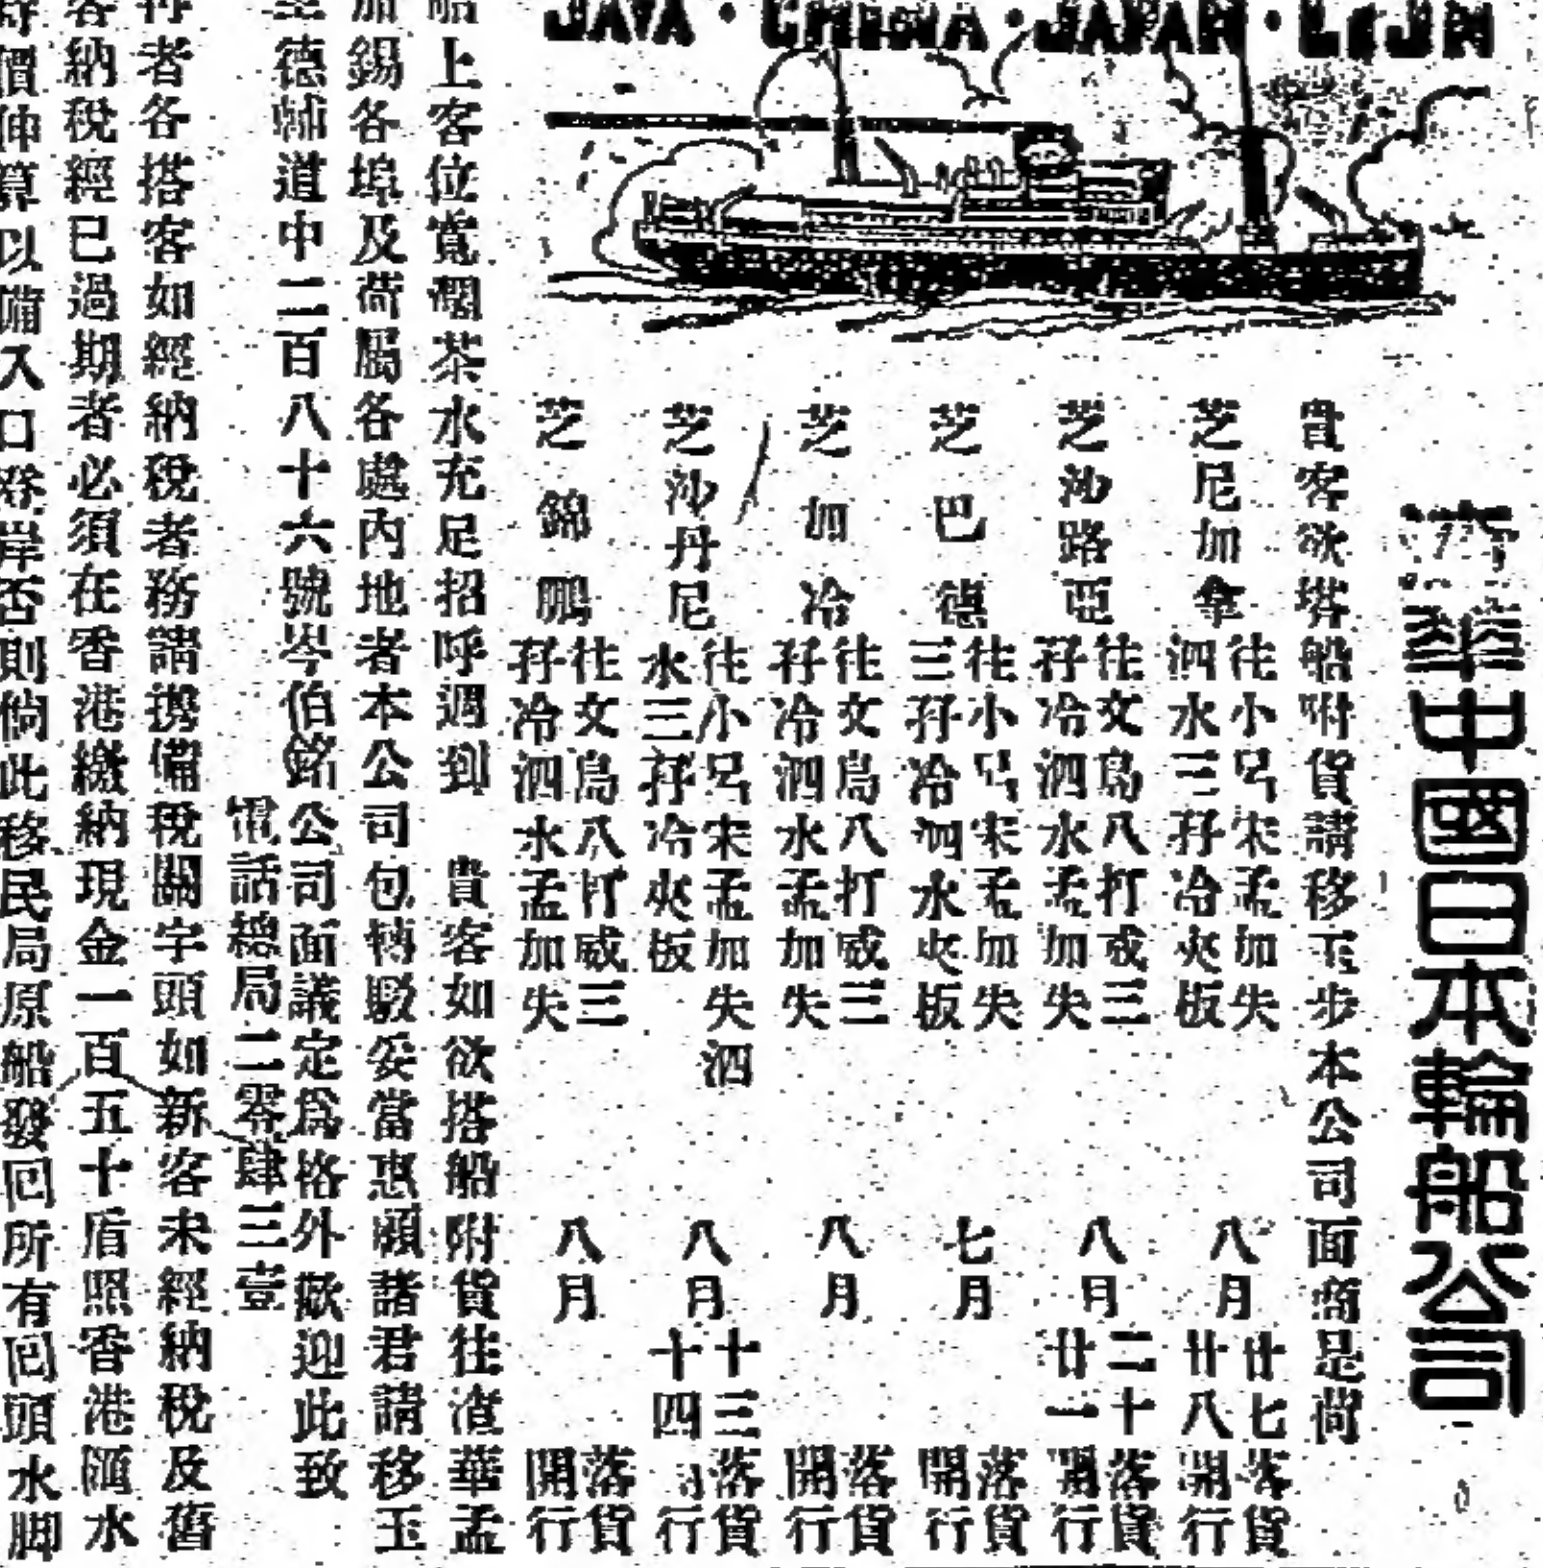 JAVA · CHINA · JAPAN · LIJN
渣華中國日本輪船公司
貴客欲搭船附貨請移玉步本公司面商是荷
芝尼加拿 往小呂宋孟加失
泗水三孖冷夾板 八月 廿七落貨
廿八開行
芝沙路亞 往文島八打威三
孖冷泗水孟加失 八月 二十落貨
廿一開行
芝巴德 往小呂宋孟加失
三孖冷泗水夾板 七月 落貨
開行
芝加冷 往文島八打威三
孖冷泗水孟加失 八月 落貨
開行
芝沙丹尼 往小呂宋孟加失泗
水三孖冷夾板 八月 十三落貨
十四開行
芝錦鵬 往文島八打威三
孖冷泗水孟加失 八月 落貨
開行
船上客位寬濶茶水充足招呼週到 貴客如欲搭船附貨往渣華孟
加錫各埠及荷屬各處內地者本公司包轉駁妥當惠顧諸君請移玉
至德輔道中二百八十六號岑伯銘公司面議定爲格外歡迎此致
電話總局二零肆三壹
再者各搭客如經納稅者務請携備稅關字頭如新客未經納稅及舊
客納稅經已過期者必須在香港繳納現金一百五十盾照香港匯水
時價伸算以備入口登岸否則倘此移民局原船發回所有回頭水脚